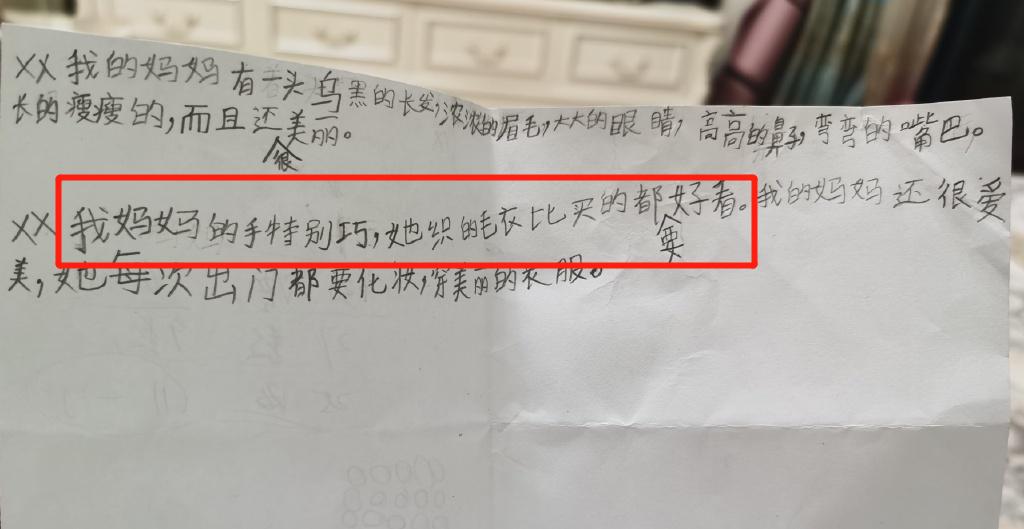 XX我的妈妈有一头乌黑的长发,浓浓的眉毛,大大的眼睛,高高的鼻子,弯弯的嘴巴。
长的瘦瘦的,而且还很美丽。
XX我妈妈的手特别巧,她织的毛衣比买的都要好看。我的妈妈还很爱
美,她每次出门都要化妆,穿美丽的衣服。